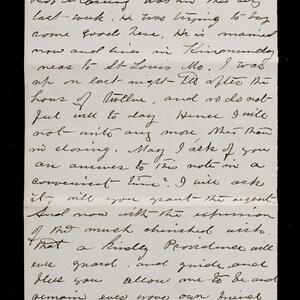 was in this city
last week. He was trying to buy
some goods here. He is married
now and lives in Kinmundy
near to St Louis Mo. I was
up on last night till after the
hour of twelve, and so do not
feel well to day. Hence I will
not write any more than this
in closing. May I ask of you
an answer to this note in a
convenient time? I will ask
it, will you grant the request.
And now with the expression
of the much cherished wish
that a Kindly Providence will
ever guard and guide, and
bless you allow me to be and
remain ever your own friend